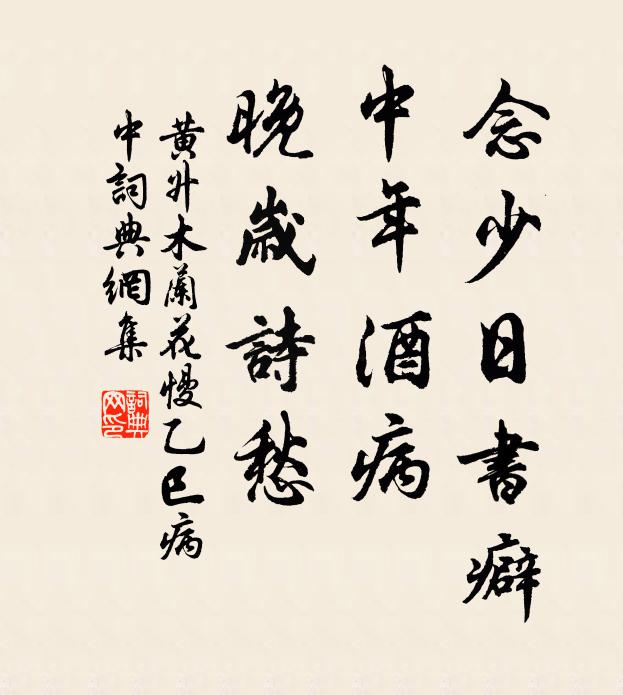 念少日書癖
中年酒病
晚歲詩愁
黃升木蘭花慢乙巳病
中詞典網集
詞典网印